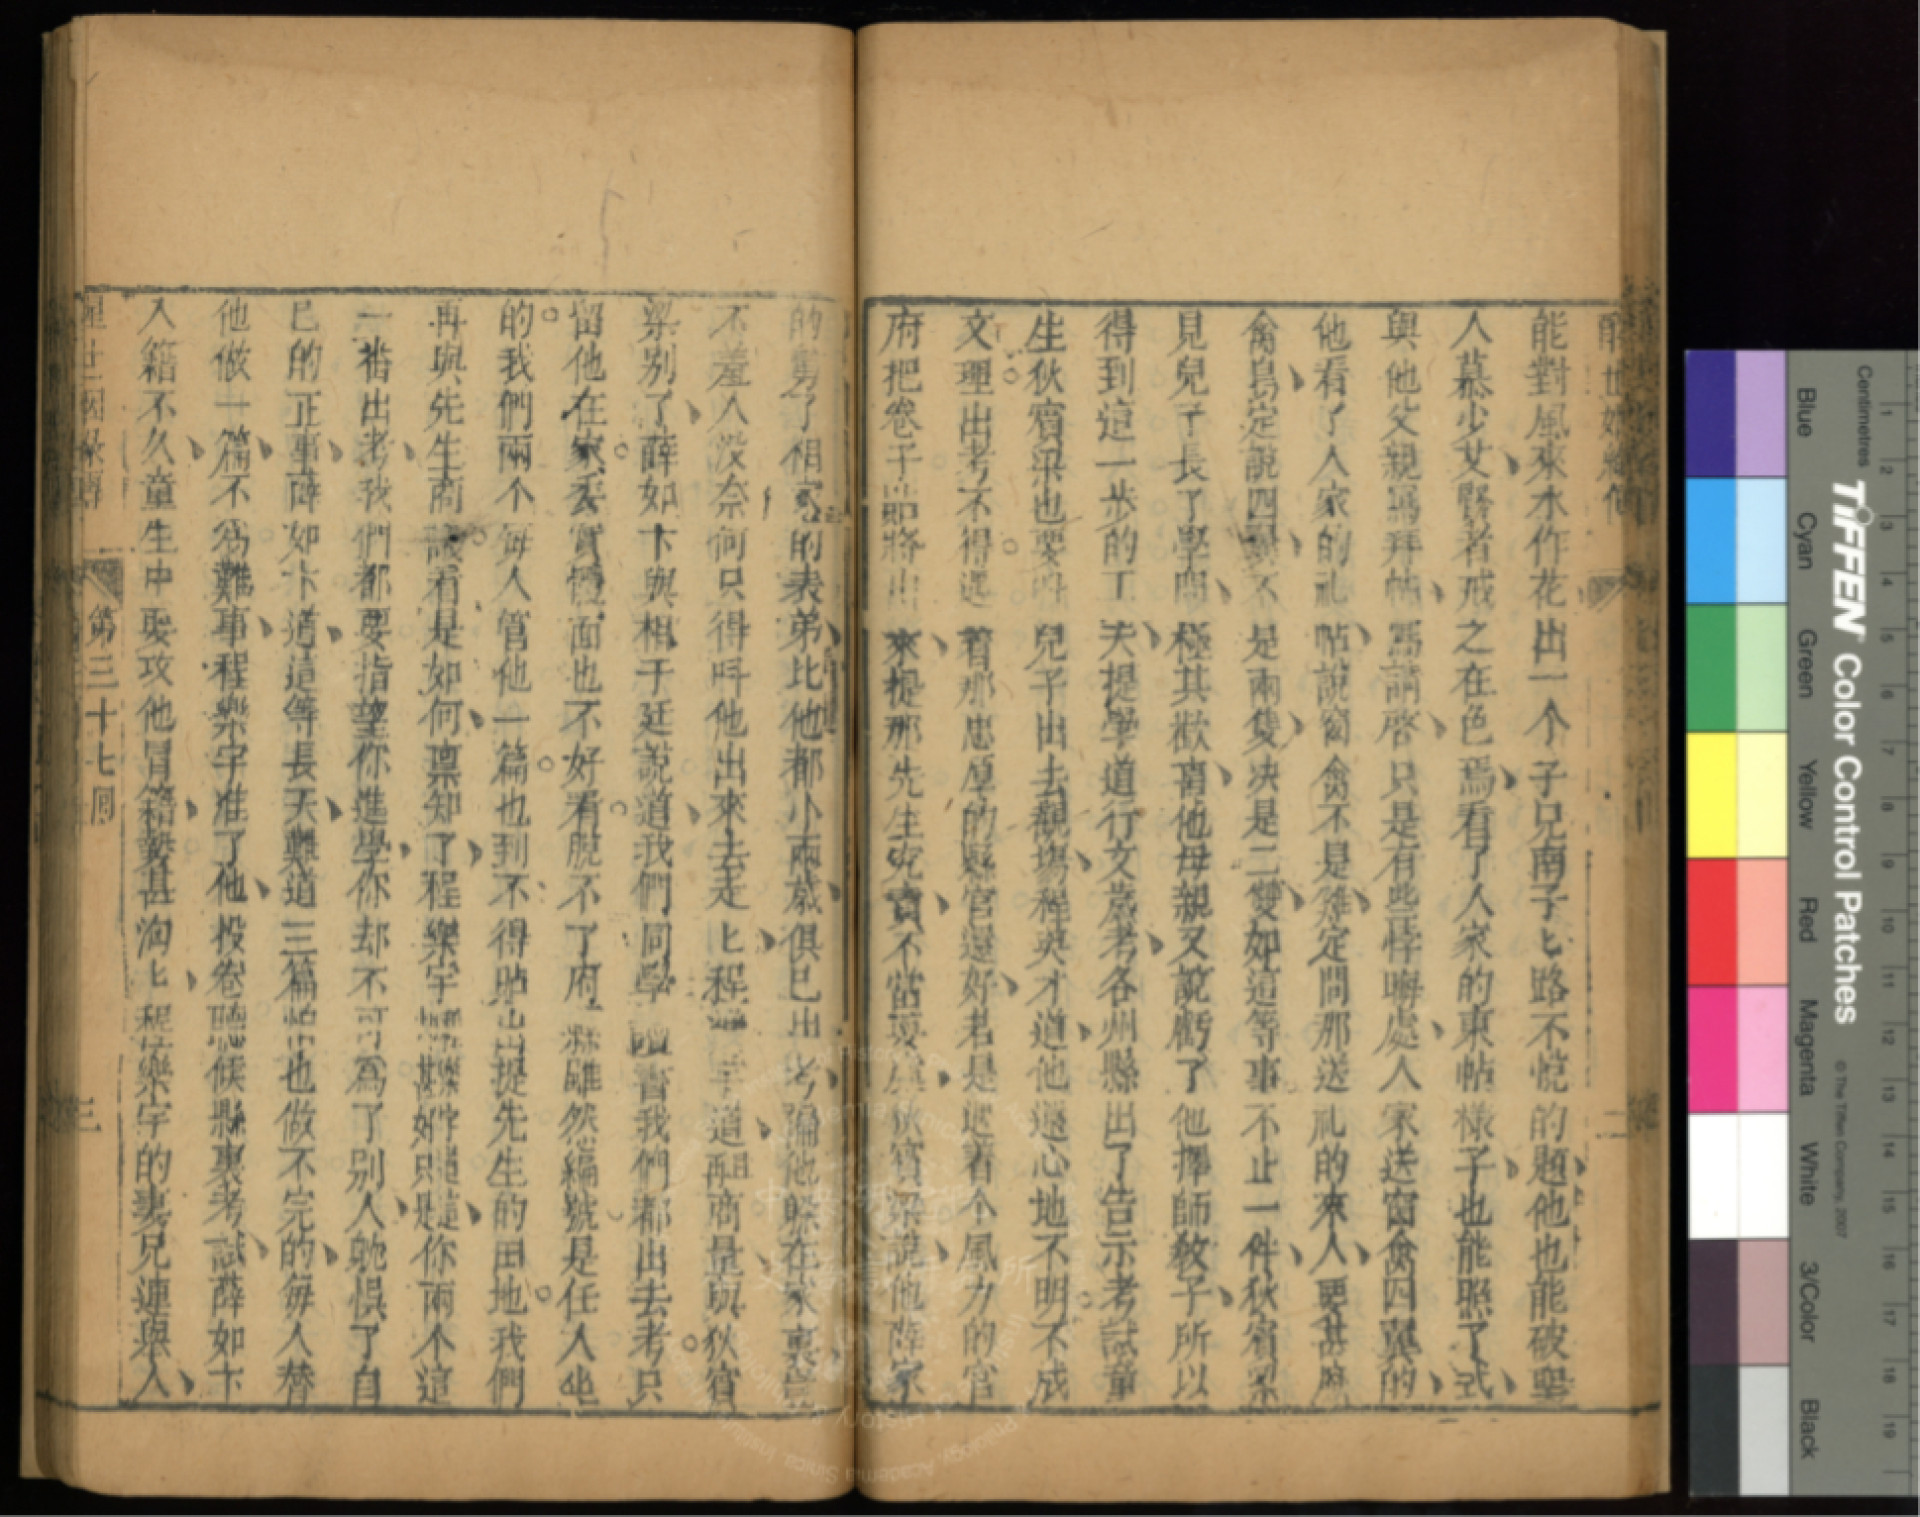 能對風來水作花出一个子兄南子匕路不悅的題他也能破聖
人慕少艾賢者戒之在色焉看了人家的柬帖樣子也能照了式
與他父親寫拜帖寫請啓只是有些悖晦處人家送窗禽四翼的
他看了人家的礼帖說窗禽不是雞定問那送礼的來人要甚麽
禽鳥定說四翼不是兩隻决是二雙如這等事不止一件狄賓梁
見兒子長了學問極其歡喜他母親又說虧了他擇師教子所以
得到這一步的工夫提學道行文歲考各州縣出了告示考試童
生狄賓梁也要叫兒子出去觀塲程英才道他還心地不明不成
文理出考不得遇着那忠厚的縣官還好若是遇着个風力的官
府把卷子貼將出來提那先生究責不當耍處狄賓梁說他薛家
的舅子相家的表弟比他都小兩歲俱已出考偏他躲在家裏豈
不羞人没奈何只得呌他出來去走匕程樂宇道再商量與狄賓
梁别了薛如卞與相于廷說道我們同學讀書我們都出去考只
留他在家丢實體面也不好看脫不了府縣雖然編號是任人坐
的我們兩个每人管他一篇也到不得貼出提先生的田地我們
再與先生商議看是如何禀知了程樂宇
一番出考我們都要指望你進學你却不可爲了别人躭悞了自
已的正事薛如卞道這等長天難道三篇 也做不完的每人替
他做一篇不爲難事程樂宇准了他投卷聽候縣裏考試薛如卞
入籍不久童生中要攻他冒籍勢甚洶匕程樂宇的妻兄連舉人
第三十七囘
三